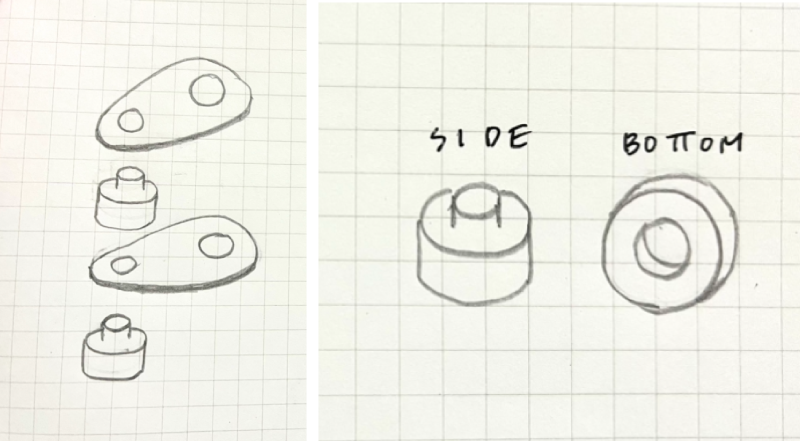 SIDE
BOTTOM